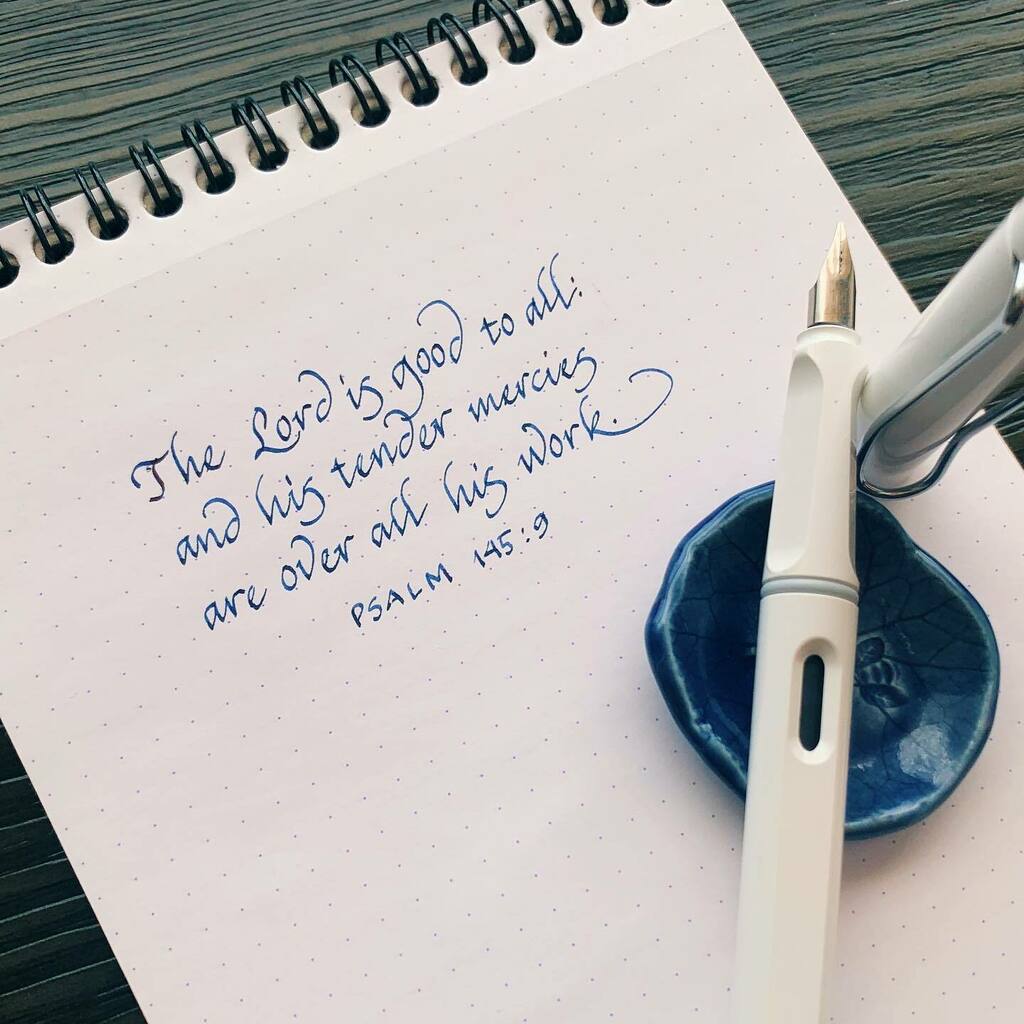 The Lord is good to all:
and his tender mercies
are over all his work.
PSALM 145:9